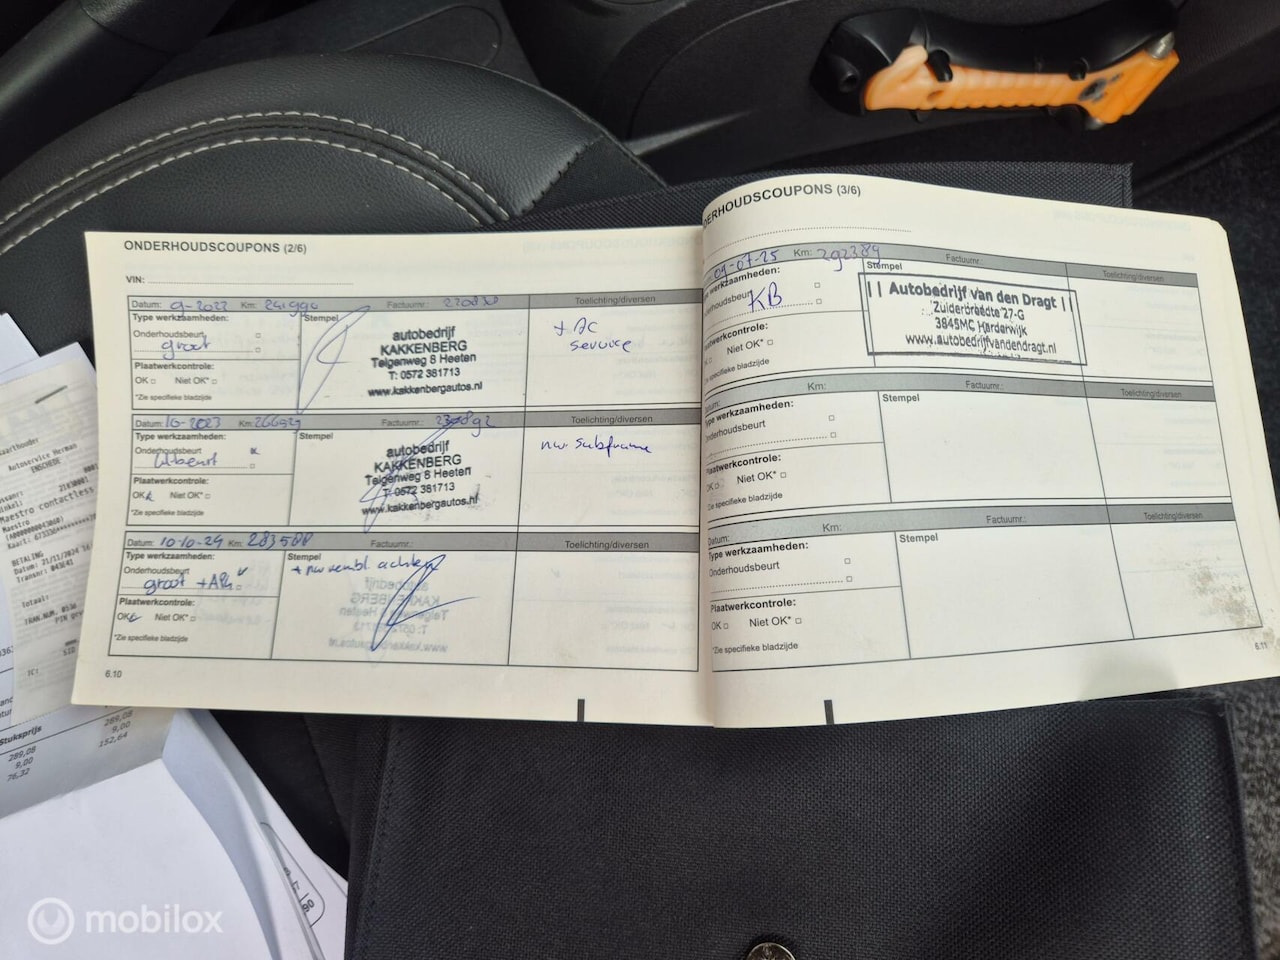 ONDERHOUDSCOUPONS (2/6)
VIN:
Datum: 9-2022 Km: Factuurnr.: Toelichting/diversen
Type werkzaamheden: Stempel
Onderhoudsbeurt
groot
Plaatwerkcontrole:
OK Niet OK*
*Zie specifieke bladzijde
autobedrijf
KAKKENBERG
Telgenweg 8 Heeten
T: 0572 381713
www.kakkenbergautos.nl
+ AC
service
Datum: 10-2023 Km: Factuurnr.: Toelichting/diversen
Type werkzaamheden: Stempel
Onderhoudsbeurt
Plaatwerkcontrole:
OK Niet OK*
*Zie specifieke bladzijde
autobedrijf
KAKKENBERG
Telgenweg 8 Heeten
T: 0572 381713
www.kakkenbergautos.nl
nw subframe
Datum: 10-10-24 Km: 283588 Factuurnr.: Toelichting/diversen
Type werkzaamheden: Stempel
Onderhoudsbeurt
groot + APK
Plaatwerkcontrole:
OK Niet OK*
*Zie specifieke bladzijde
+ nw rembl. achter
6.10
ONDERHOUDSCOUPONS (3/6)
09-07-25 Km: 292389 Factuurnr.: Toelichting/diversen
Type werkzaamheden: Stempel
Onderhoudsbeurt
KB
Plaatwerkcontrole:
Niet OK*
*Zie specifieke bladzijde
|| Autobedrijf van den Dragt ||
Zuiderbreedte 27-G
3845MC Harderwijk
www.autobedrijfvandendragt.nl
Datum: Km: Factuurnr.: Toelichting/diversen
Type werkzaamheden: Stempel
Onderhoudsbeurt
Plaatwerkcontrole:
OK Niet OK*
*Zie specifieke bladzijde
Datum: Km: Factuurnr.: Toelichting/diversen
Type werkzaamheden: Stempel
Onderhoudsbeurt
Plaatwerkcontrole:
OK Niet OK*
*Zie specifieke bladzijde
6.11
Autoservice Herman
ENSCHEDE
Maestro contactless
Maestro
BETALING
Datum: 21/11/2024
Totaal:
Stuksprijs
289,08 289,08
9,00 9,00
76,32 152,64
mobilox